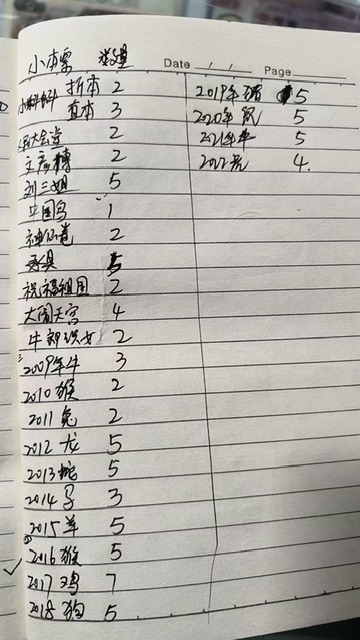 小本票 数量
Date / / Page
折本 2
直本 3
大会堂 2
王彦博 2
刘三姐 5
中国鸟 1
神仙卷 2
5
祝福祖国 2
大闹天宫 4
牛郎织女 2
2009年牛 3
2010 猴 2
2011 兔 2
2012 龙 5
2013 蛇 5
2014 3
2015 羊 5
2016 猴 5
2017 鸡 7
2018 狗 5
2019年猪 5
2020年鼠 5
2021年牛 5
2022虎 4.